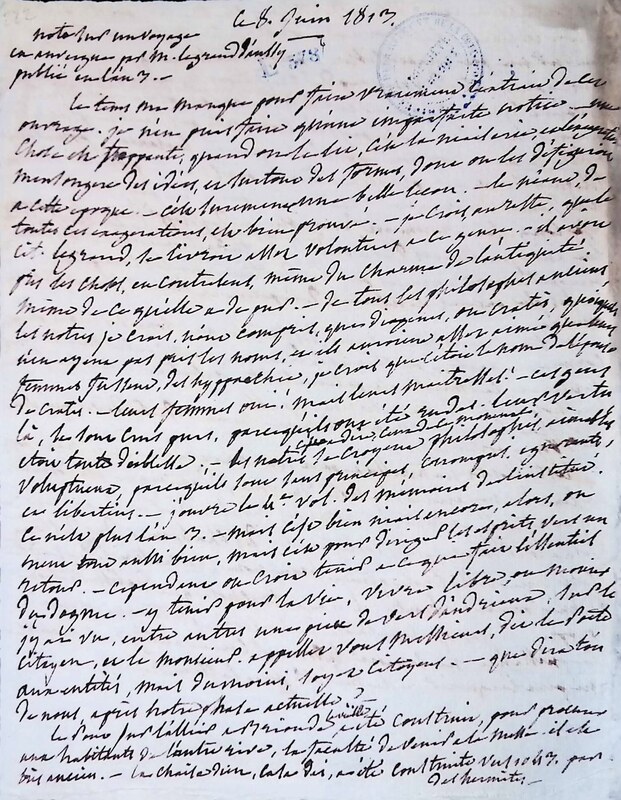 182
ce 8. Juin 1813.
note sur un voyage
en auvergne par M. legrand daussy
publié en l'an 3. —
E 578
le tems me manque pour faire vraiment l'extrait de cet
ouvrage. je n'en puis faire qu'une imparfaite notice. — une
chose est frappante, quand on le lit, c'est la niaiserie et l'exagération
mensongere des idées, et surtout des formes, dont on les
a cette epoque. — c'est surement une belle lecon. — le néant, de
toutes ces exagerations, est bien prouvé. — je crois au reste, que le
cit. legrand, se livroit assez volontiers a ce genre. — il avoit
pris les choses, en contresens, même du charme de l'antiquité
même de ce qu'elle a de pur. — de tous les philosophes anciens
les notres je crois, n'ont compris, que diogenes, ou cratès, quoiqu'ils
n'en ayent pas pris les noms, et ils auroient assez aimé que leurs
femmes fussent, des hypparchia, je crois que c'etoit le nom de l'épouse
de cratès. — leurs femmes oui! mais leurs maitresses! — ces gens
là, se sont crus purs, parcequ'ils ont été rudes. leur vertu
etoit toute — les notres se croyent philosophes, aimables
voluptueux, parcequ'ils sont sans principes, corrompus, ignorants,
et libertins. — j'ouvre le 4e. vol. des mémoires de l'institut.
ce n'est plus l'an 3. — mais c'est bien niais encore, alors, on
mais c'est pour diriger les esprits vers un
retour. — cependant on croit tenir a ce que fait l'essentiel
du dogme. — y tenir pour la vie, vivre libre, ou mourir
j'y ai vu, entre autres une piece de vers d'andrieux, sur le
citoyen, et le monsieur. appellez vous messieurs, dit le poete
aux entités, mais du moins, soyez citoyens. — que dira t'on
de nous, après notre phase actuelle? —
le pont sur l'allier a Brioude vieille a été construit, pour procurer
aux habitants de l'autre rive, la faculté de venir a la messe. il est
très ancien. — la chaise dieu, casa dei, a été construite vers 1043. par
des hermites. —